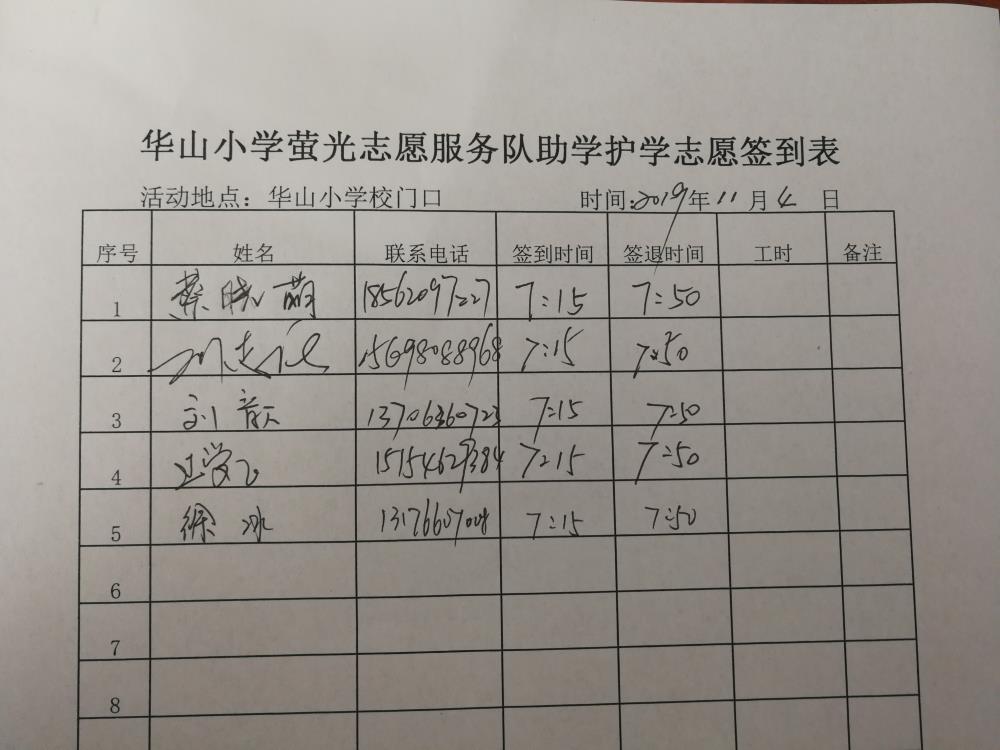 华山小学萤光志愿服务队助学护学志愿签到表
活动地点：华山小学校门口 时间:2019年11月4日
序号 姓名 联系电话 签到时间 签退时间 工时 备注
1 蔡晓萌 18562097227 7:15 7:50
2 15698088968 7:15 7:50
3 刘歆 13706360723 7:15 7:50
4 15154629384 7:15 7:50
5 徐冰 7:15 7:50
6
7
8